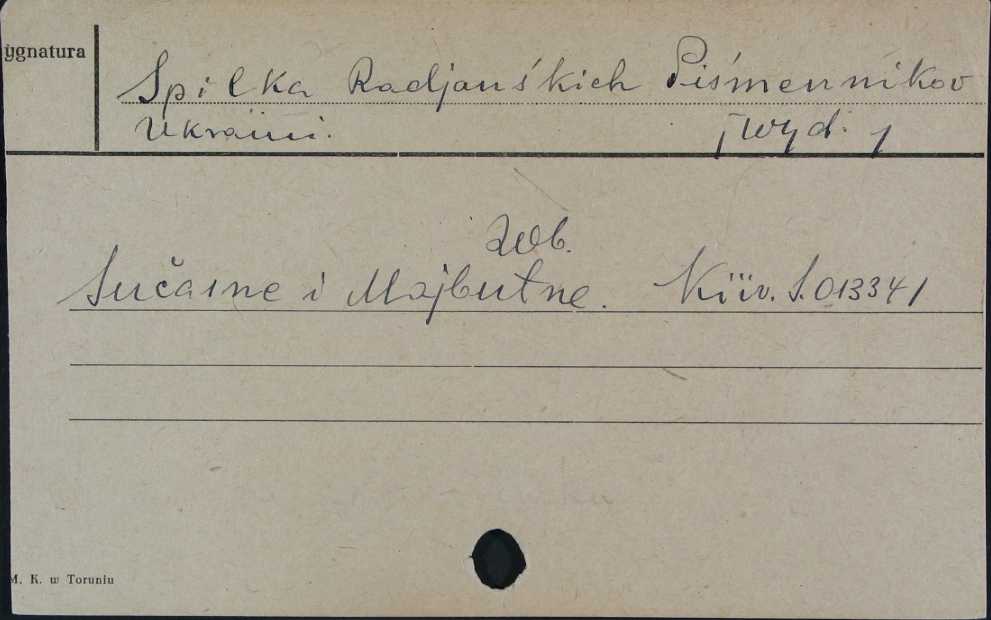 ygnatura
Spilka Radjanśkich Piśmennikov
Ukraini. [wyd.]
zob.
Sučasne i Majbutne. Kiiv. S.013341
M. K. w Toruniu